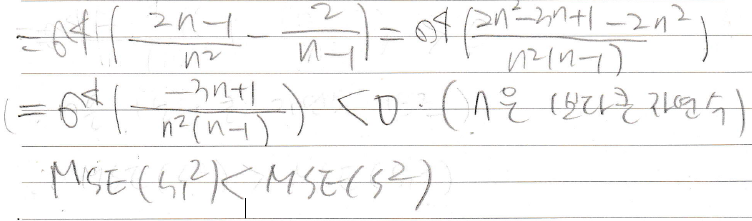 = σ⁴( (2n-1)/n² - 2/(n-1) ) = σ⁴( (2n²-3n+1-2n²)/(n²(n-1)) )
= σ⁴( (-3n+1)/(n²(n-1)) ) < 0. (n은 1보다 큰 자연수)
MSE(S₁²) < MSE(S²)